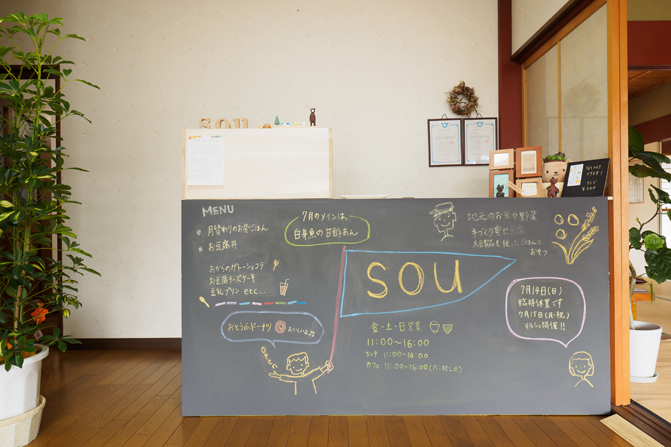 sou
MENU
月替わりのお昼ごはん
お豆腐丼
おからのガトーショコラ
お豆腐チーズケーキ
豆乳プリン etc...
7月のメインは、
白身魚の甘酢あん
地元のお米や野菜
おやつ
SOU
おとうふドーナツ
おいしいよ♪
金・土・日営業
11:00〜16:00
ランチ 11:00〜14:00
カフェ 11:00〜16:00(15:30L.O)
7月14日(日)
臨時休業です
7月15日(月・祝)
マルシェ開催!!